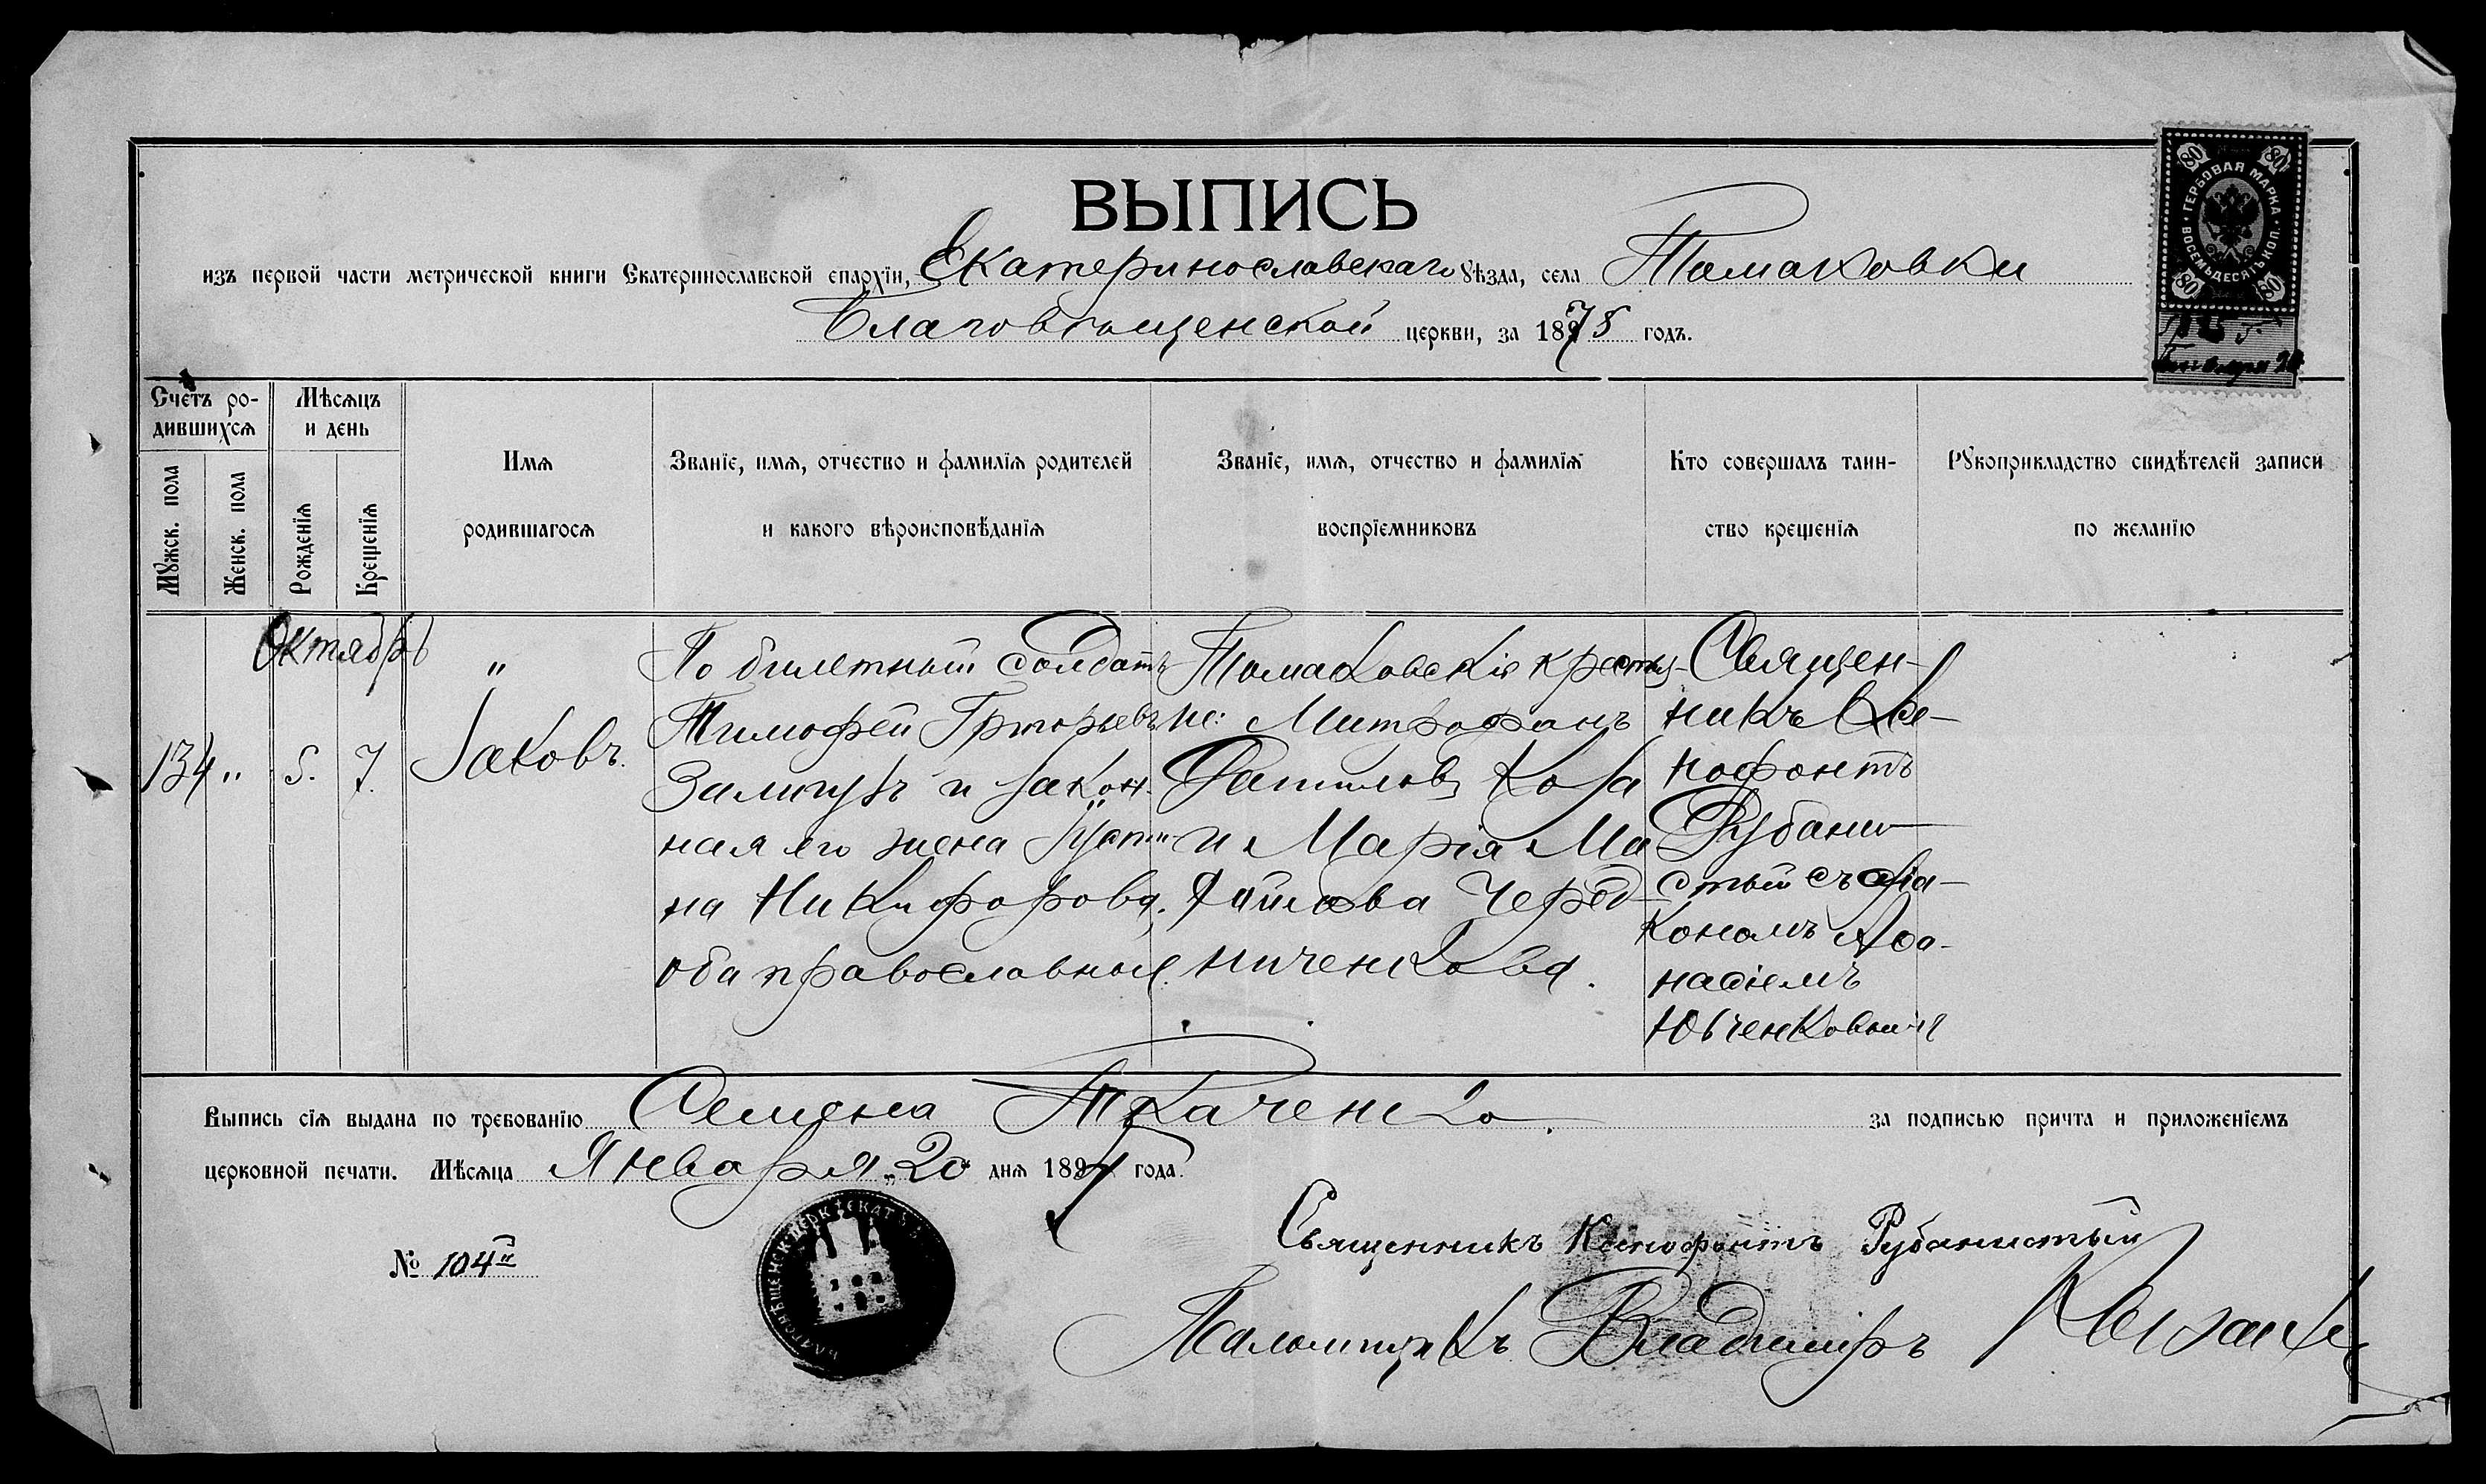 ВЫПИСЬ
изъ первой части метрической книги Екатеринославской епархїи, Екатеринославскаго уѣзда, села Томаковки
Благовѣщенской церкви, за 1875 годъ.
ГЕРБОВАЯ МАРКА
ВОСЕМЬДЕСЯТЪ КОП.
80 80
80 80
Счетъ ро-
дившихся
Мѣсяцъ
и день
Мужск. пола
Женск. пола
Рожденїя
Крещенїя
Имя
родившагося
Званїе, имя, отчество и фамилїя родителей
и какого вѣроисповѣданїя
Званїе, имя, отчество и фамилїя
воспрїемниковъ
Кто совершалъ таин-
ство крещенїя
Рукоприкладство свидѣтелей записи
по желанїю
Октябрь
134 " 5. 7.
"
Іаковъ.
По билетный солдатъ
Тимофей Григорьевъ
и закон-
ная его жена
на Никифорова,
оба православные.
Томаковскіе крестья-
не: Митрофанъ
Коза
и Марія Ма
Черед-
ниченкова.
Священ-
никъ Ксе-
нофонтъ
Рубани-
стый съ діа-
кономъ Афа-
насіемъ
Юнченковымъ
Выпись сїя выдана по требованїю Семена Ткаченко. за подписью причта и приложенїемъ
церковной печати. Мѣсяца Января 20 дня 189 года.
№ 104й
Священникъ Ксенофонтъ Рубанистый
Псаломщикъ Владиміръ